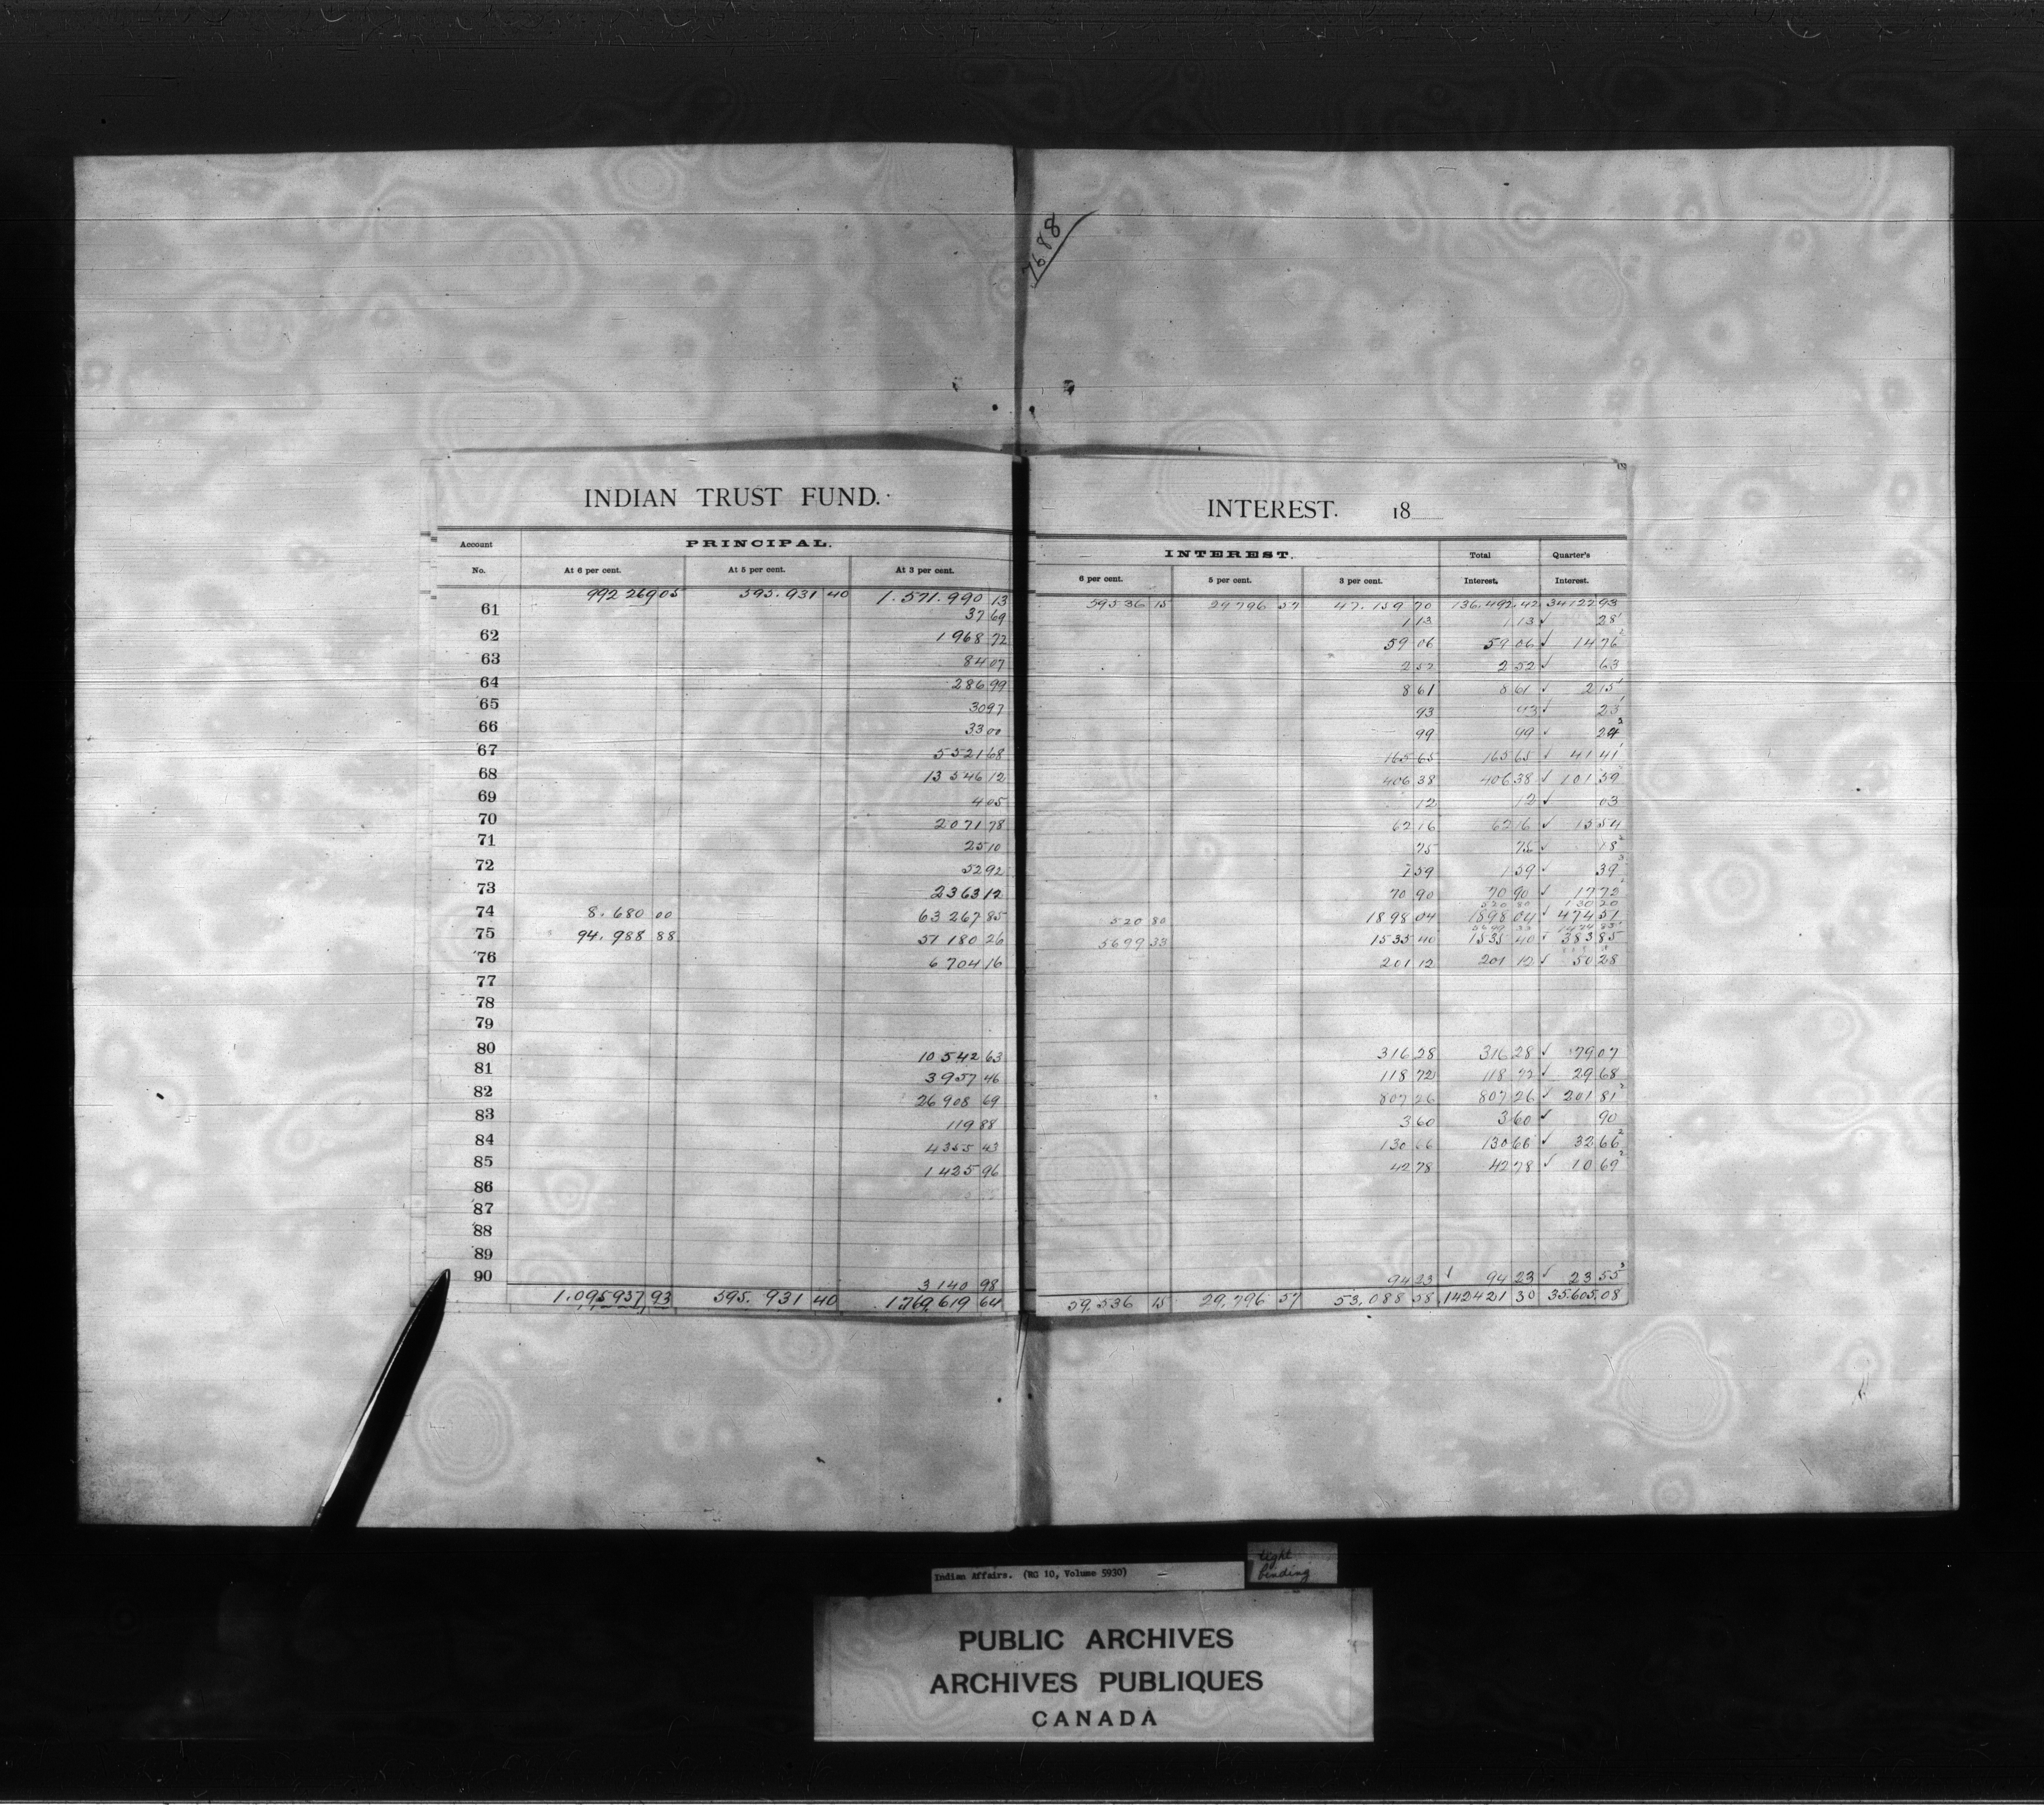 7688
INDIAN TRUST FUND. INTEREST. 18
Account No. PRINCIPAL. INTEREST. Total Interest. Quarter's Interest.
At 6 per cent. At 5 per cent. At 3 per cent. 6 per cent. 5 per cent. 3 per cent.
992 269 05 595.931 40 1.571.990 13 59536 15 29796 57 47.159 70 136.492.42 34122 93
61 37 69 1 13 1 13 ✓ 28
62 1968 72 59 06 59 06 ✓ 14 76
63 84 07 2 52 2 52 ✓ 63
64 286 99 8 61 8 61 ✓ 2 15
65 30 97 93 93 ✓ 23
66 33 00 99 99 ✓ 24
67 5521 68 165 65 165 65 ✓ 41 41
68 13546 12 406 38 406 38 ✓ 101 59
69 4 05 12 12 ✓ 03
70 2071 78 62 16 62 16 ✓ 15 54
71 25 10 75 75 ✓ 18
72 52 92 1 59 1 59 ✓ 39
73 2363 12 70 90 70 90 ✓ 17 72
520 80 130 20
74 8.680 00 63 267 85 520 80 1898 04 1898 04 ✓ 474 51
75 94.988 88 51 180 26 5699 33 1535 40 1535 40 ✓ 383 85
76 6 704 16 201 12 201 12 ✓ 50 28
77
78
79
80 10 542 63 316 28 316 28 ✓ 79 07
81 3957 46 118 72 118 72 ✓ 29 68
82 26 908 69 807 26 807 26 ✓ 201 81
83 119 88 3 60 3 60 ✓ 90
84 4355 43 130 66 130 66 ✓ 32 66
85 1425 96 42 78 42 78 ✓ 10 69
86
87
88
89
90 3140 98 94 23 ✓ 94 23 ✓ 23 55
1.095937 93 595.931 40 1.769,619 64 59,536 15 29,796 57 53,088 58 142421 30 35.605.08
Indian Affairs. (RG 10, Volume 5930)
tight
binding
PUBLIC ARCHIVES
ARCHIVES PUBLIQUES
CANADA